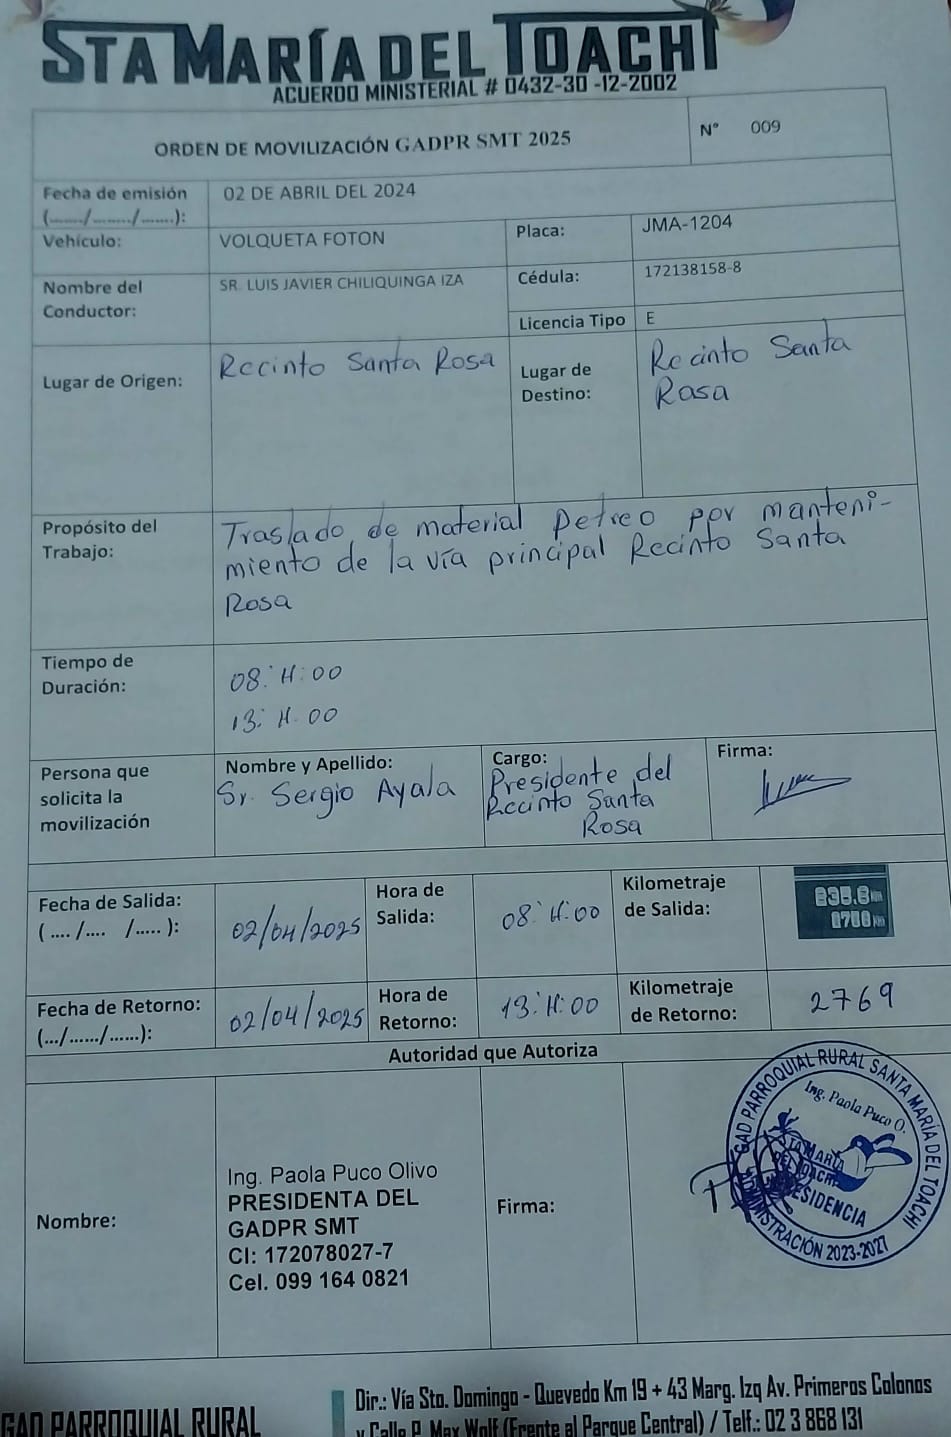 STA MARÍA DEL TOACHI
ACUERDO MINISTERIAL # 0432-30 -12-2002
ORDEN DE MOVILIZACIÓN GADPR SMT 2025
N° 009
Fecha de emisión
(......./......../.......):
02 DE ABRIL DEL 2024
Vehículo:
VOLQUETA FOTON
Placa:
JMA-1204
Nombre del
Conductor:
SR. LUIS JAVIER CHILIQUINGA IZA
Cédula:
172138158-8
Licencia Tipo
E
Lugar de Origen:
Recinto Santa Rosa
Lugar de
Destino:
Recinto Santa
Rosa
Propósito del
Trabajo:
Traslado de material petreo por manteni-
miento de la vía principal Recinto Santa
Rosa
Tiempo de
Duración:
08:H:00
13:H.00
Persona que
solicita la
movilización
Nombre y Apellido:
Sr. Sergio Ayala
Cargo:
Presidente del
Recinto Santa
Rosa
Firma:
Fecha de Salida:
( .... /.... /..... ):
02/04/2025
Hora de
Salida:
08:H:00
Kilometraje
de Salida:
Fecha de Retorno:
(.../....../......):
02/04/2025
Hora de
Retorno:
13:H:00
Kilometraje
de Retorno:
2769
Autoridad que Autoriza
Nombre:
Ing. Paola Puco Olivo
PRESIDENTA DEL
GADPR SMT
CI: 172078027-7
Cel. 099 164 0821
Firma:
GAD PARROQUIAL RURAL SANTA MARÍA DEL TOACHI
Ing. Paola Puco O.
STA MARÍA
DEL TOACHI
PRESIDENCIA
ADMINISTRACIÓN 2023-2027
GAD PARROQUIAL RURAL
Dir.: Vía Sto. Domingo - Quevedo Km 19 + 43 Marg. Izq Av. Primeros Colonos
y Calle P. Max Wolf (Frente al Parque Central) / Telf.: 02 3 868 131